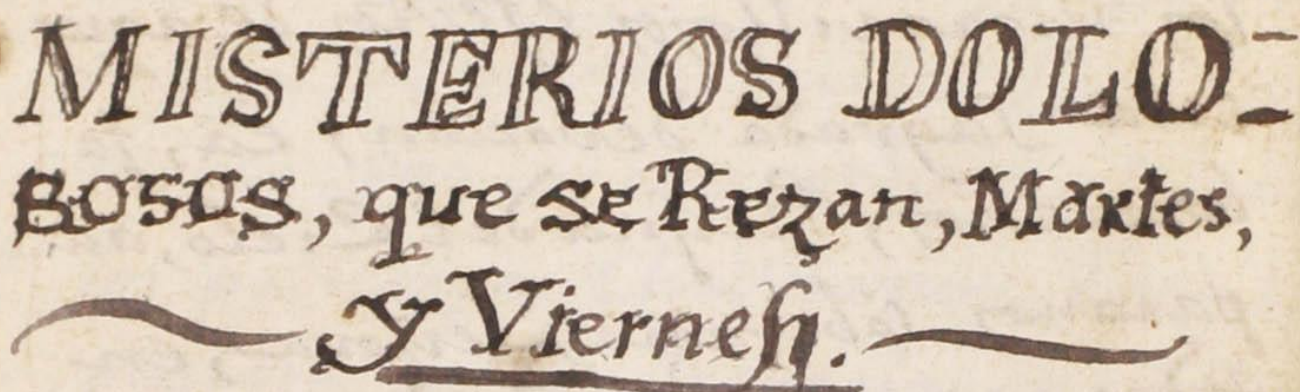 MISTERIOS DOLO=
ROSOS, que se Rezan, Martes,
y Viernes.